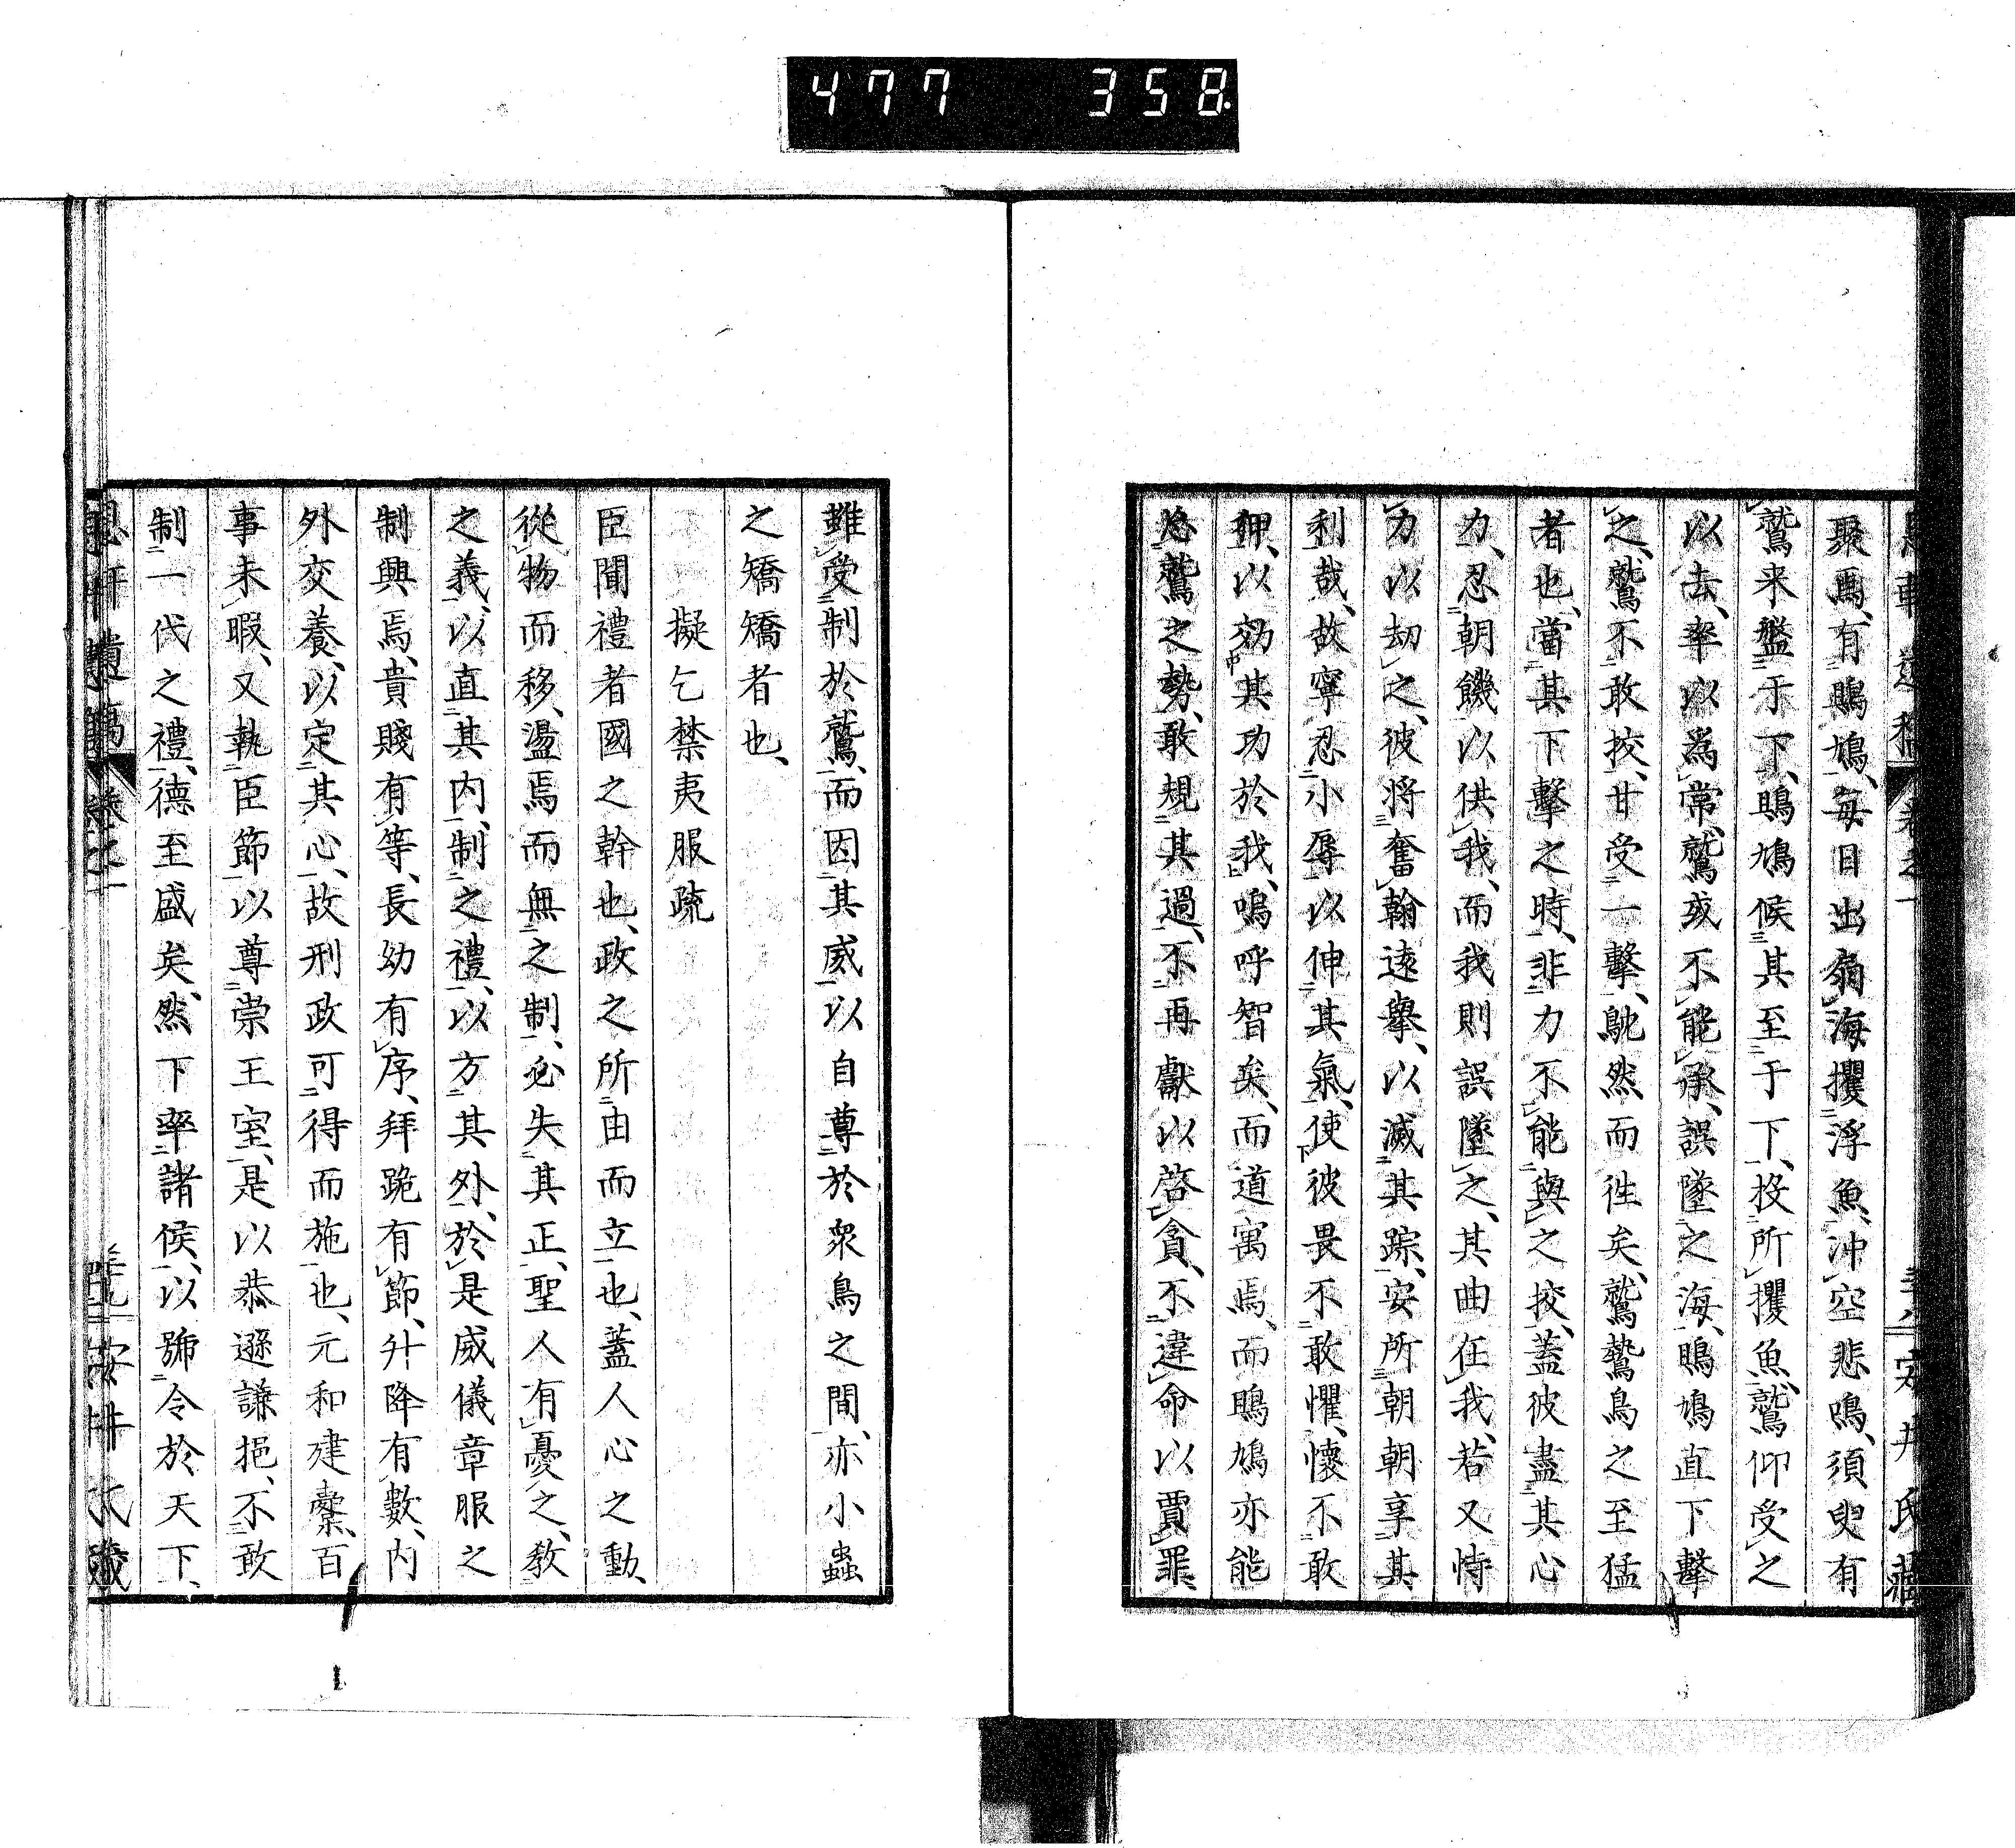 477 358
聚焉、有鵰鳩、每日出翕海攫浮魚、沖空悲鳴、須臾有
鷲来盤于下、鵰鳩候其至于下、投所攫魚、鷲仰受之
以去、率以為常、鷲或不能承、誤墜之海、鵰鳩直下擊
之、鷲不敢挍、甘受一擊、鴕然而徃矣、鷲鷙鳥之至猛
者也、當其下擊之時、非力不能與之挍、蓋彼盡其心
力、忍朝饑以供我、而我則誤墜之、其曲在我、若又恃
力以劫之、彼將奮翰遠擧、以滅其踪、安所朝朝享其
利哉、故寧忍小辱以伸其氣、使彼畏不敢懼、懷不敢
狎、以効其功於我、嗚呼智矣、而道寓焉、而鵰鳩亦能
恊鷲之勢、敢規其過、不再獻以啓貪、不違命以賈罪、
雖受制於鷲、而因其威以自尊於衆鳥之間、亦小蟲
之矯矯者也、
擬乞禁夷服疏
臣聞禮者國之幹也、政之所由而立也、蓋人心之動、
從物而移、盪焉而無之制、必失其正、聖人有憂之、教
之義、以直其内、制之禮、以方其外、於是威儀章服之
制興焉、貴賤有等、長幼有序、拜跪有節、升降有數、内
外交養、以定其心、故刑政可得而施也、元和建櫜、百
事未暇、又執臣節以尊崇王室、是以恭遜謙挹、不敢
制一代之禮、德至盛矣、然下率諸侯、以號令於天下、
遺稿 卷之一 安井氏藏